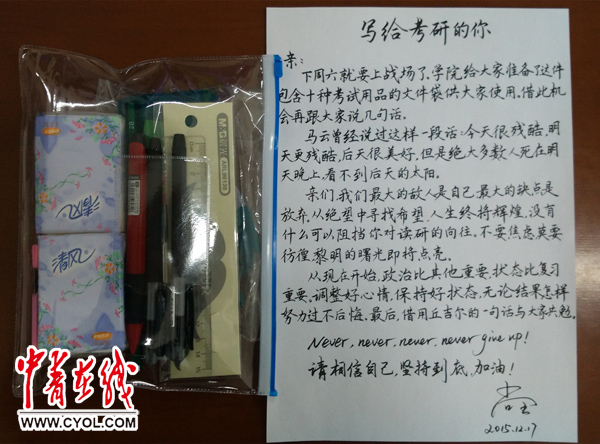 写给考研的你
亲:
下周六就要上战场了,学院给大家准备了这件
包含十种考试用品的文件袋供大家使用,借此机
会再跟大家说几句话。
马云曾经说过这样一段话:今天很残酷,明
天更残酷,后天很美好,但是绝大多数人死在明
天晚上,看不到后天的太阳。
亲们,我们最大的敌人是自己,最大的缺点是
放弃,从绝望中寻找希望,人生终将辉煌,没有
什么可以阻挡你对读研的向往,不要焦虑莫要
彷徨,黎明的曙光即将点亮。
从现在开始,政治比其他重要,状态比复习
重要,调整好心情,保持好状态,无论结果怎样
努力过不后悔。最后,借用丘吉尔的一句话与大家共勉
Never, never, never, never give up!
请相信自己,坚持到底,加油!
2015.12.17
清风
清风
M&G 晨光
中青在线
www.CYOL.com